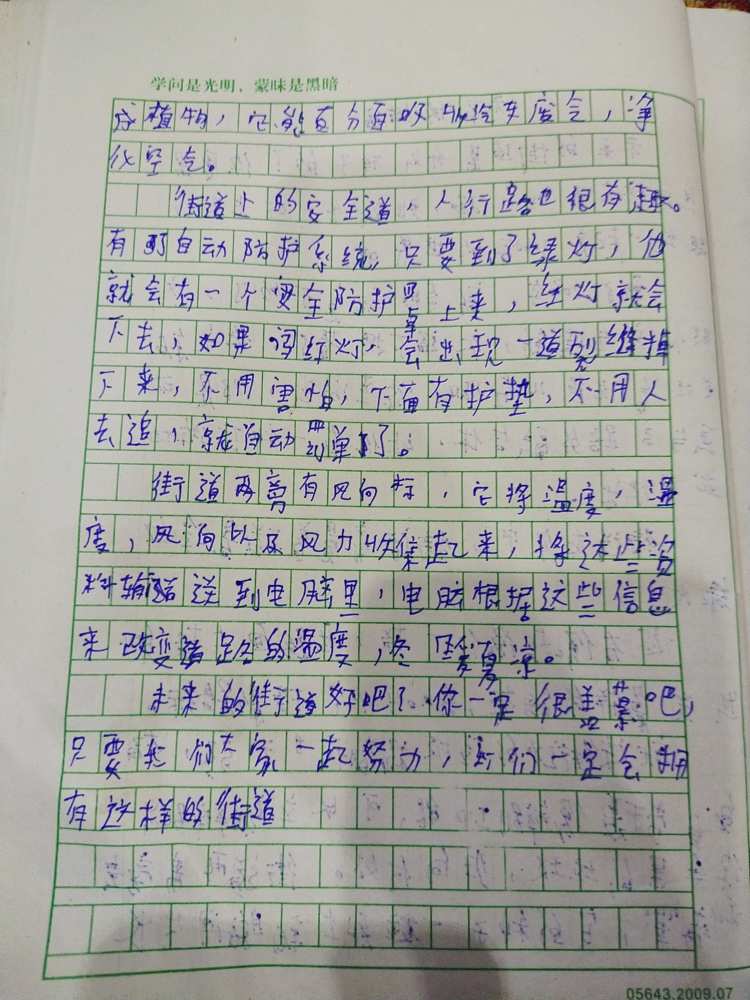 学问是光明，蒙昧是黑暗
植物，它能百分百吸收汽车废气，净
化空气。
街道上的安全道，人行路也很有趣。
有自动防护系统，只要到了绿灯，他
就会有一个安全防护罩上来，红灯就会
下去，如果闯红灯，会出现一道裂缝掉
下来，不用害怕，下面有护垫，不用人
去追，就自动罚单了。
街道两旁有风向标，它将温度，湿
度，风向以及风力收集起来，将这些资
料输送到电脑里，电脑根据这些信息
来改变道路的温度，冬暖夏凉。
未来的街道好吧？你一定很羡慕吧，
只要我们大家一起努力，我们一定会拥
有这样的街道
05643.2009.07